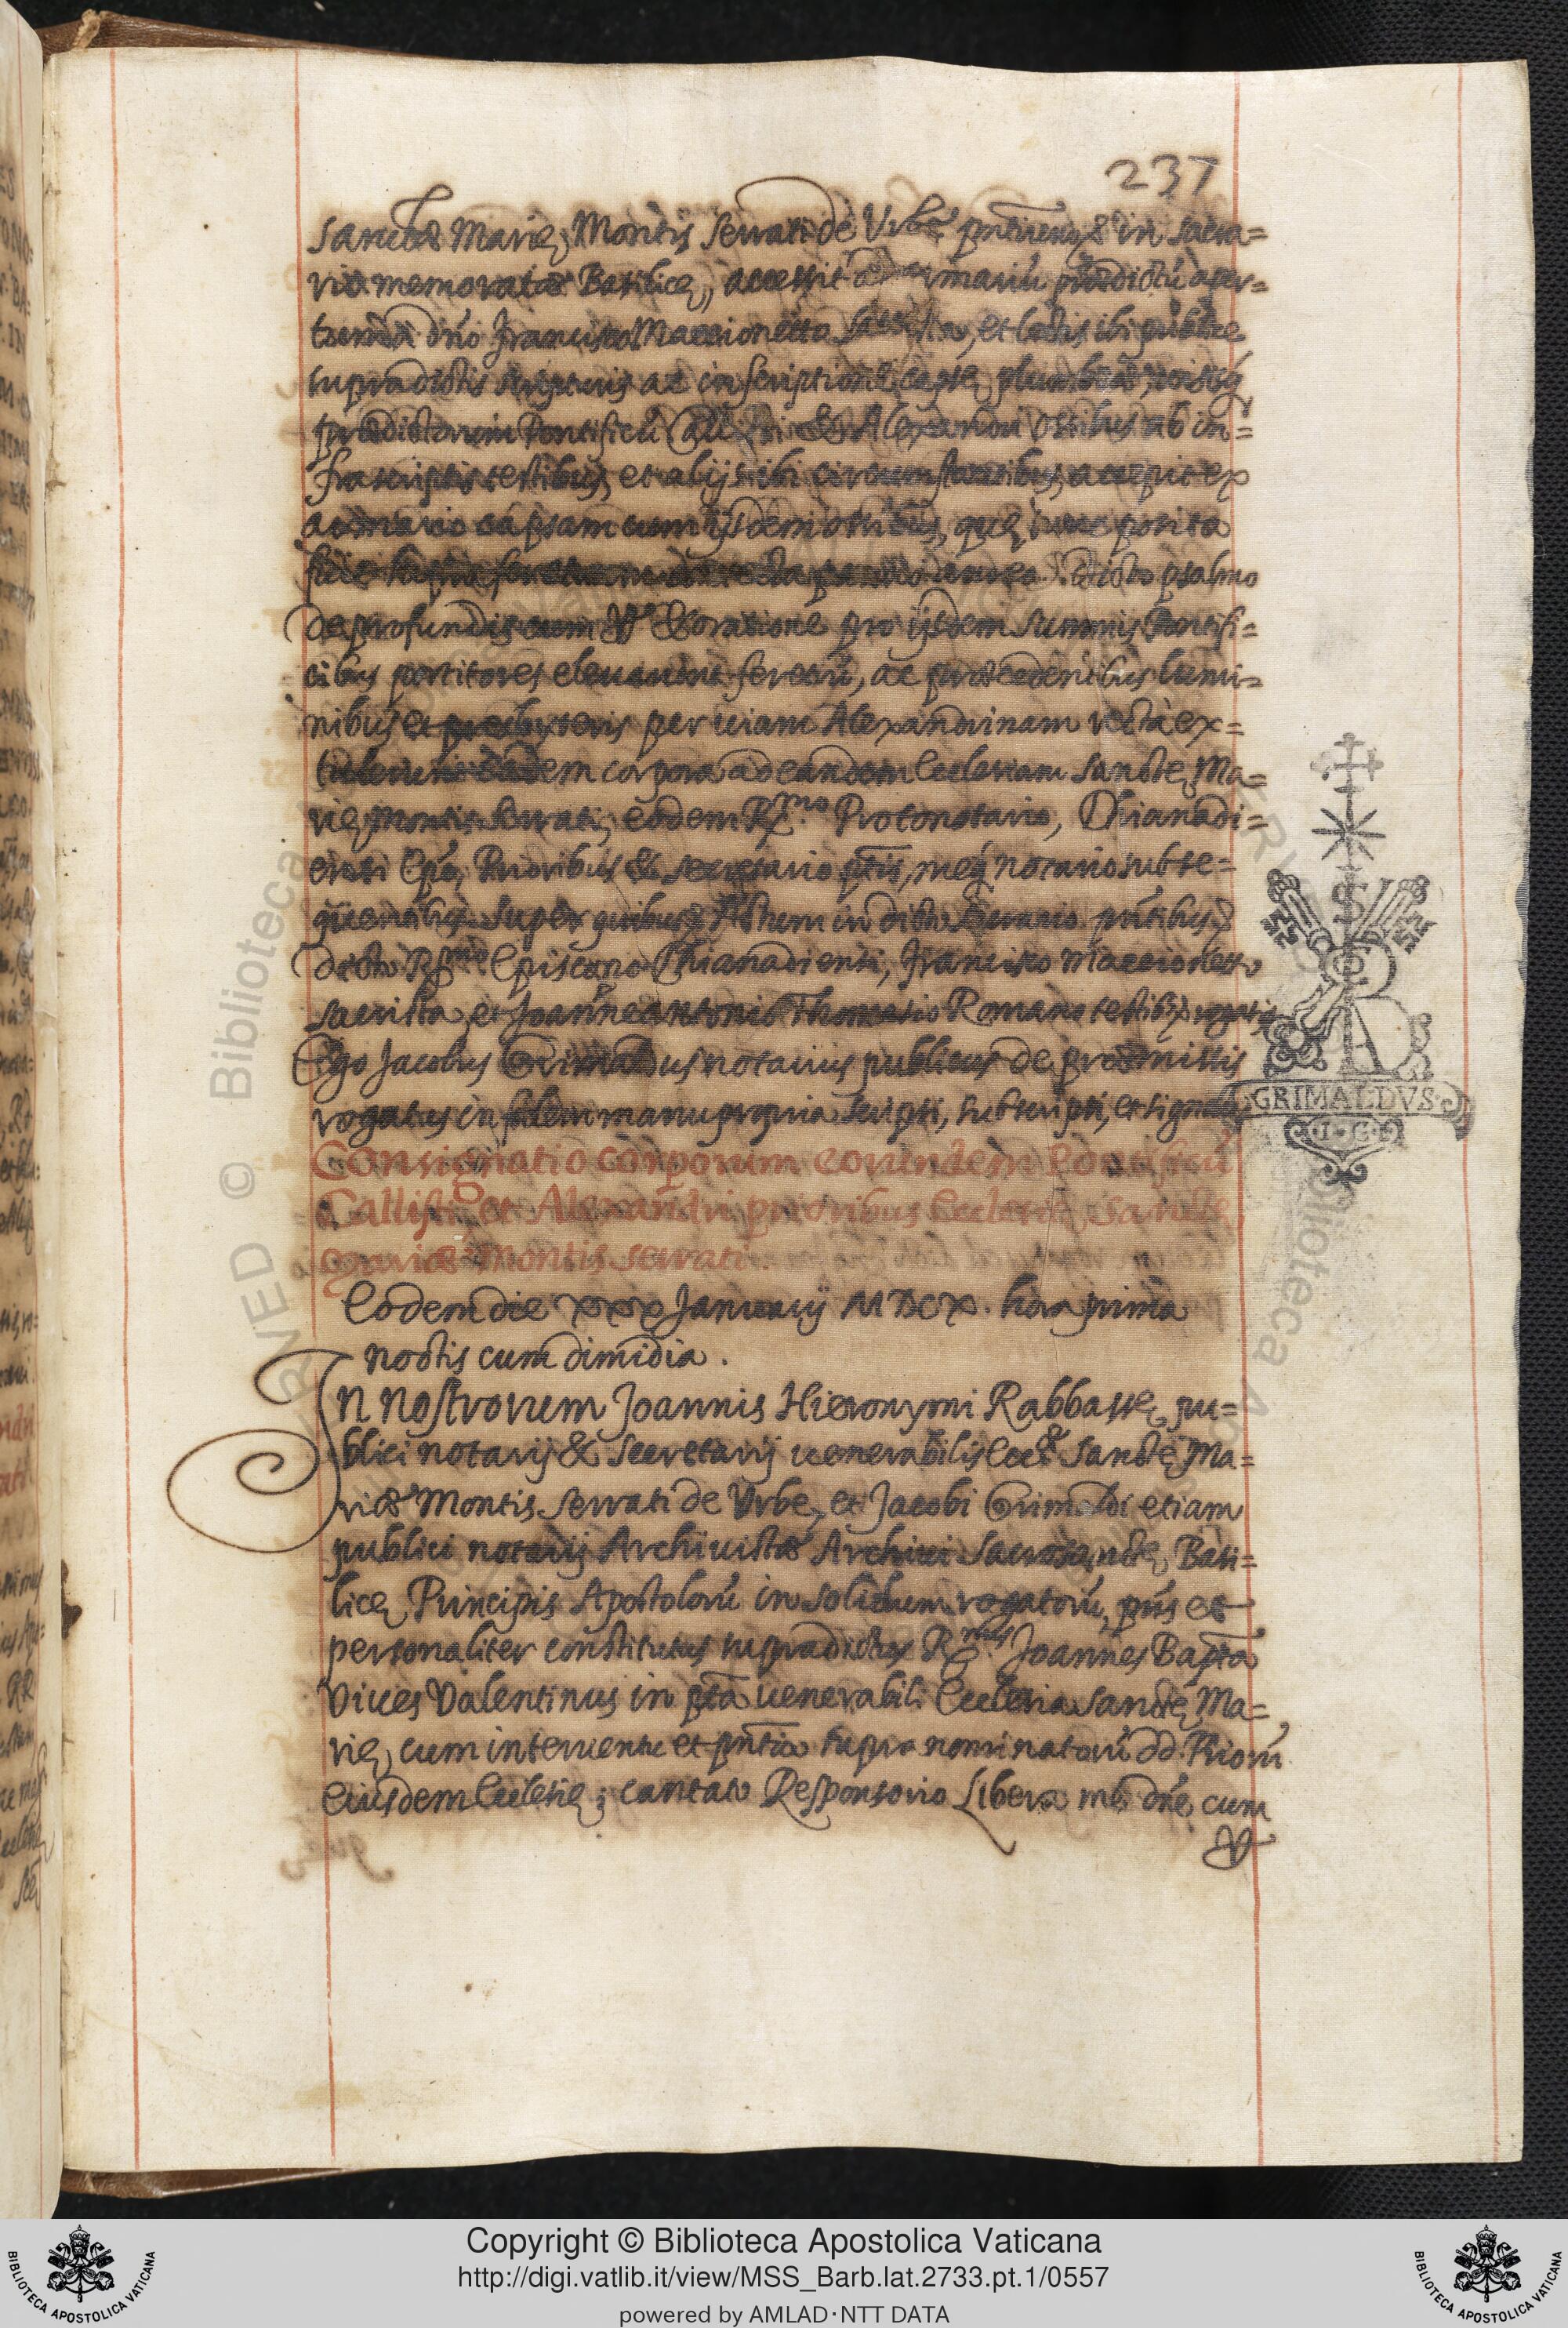 237
sanctæ Marię Montis Serrati de Vrbe pñtibus & in sacra=
ria memoratæ Basilicę, accessit ad armariũ prædictũ aper=
tum à dño Francisco Maccionetto sacrista, et lectis ibi publicè
supradictis scripturis ac inscriptione capsę plumbeæ, visisq̃
prædictorum Pontificũ Callisti & Alexandri ossibus ab in=
frascriptis testibus, et alijs ibi circumstantibus, accepit ex
armario capsam cum ijsdem ossibus, quę posita
fuit supra feretrum panno dicto psalmo
de profundis cum ℣ & oratione pro ijsdem summis Pontifi=
cibus portitores eleuarunt feretrũ, ac præcedentibus lumi=
nibus et presbyteris per uiam Alexandrinam rectà ex=
tulerunt eadem corpora ad eandem Ecclesiam Sanctę Ma=
rię Montis Serrati, eodem R.mo Protonotario, Chianadi=
ensi Epõ, Prioribus & secretario pñtis, meq̃ notario subse=
quentibus. Super quibus & Actum in dicto secrario pñtibus
dicto R.mo Episcopo Chianadiensi, Francisco Maccionetto
sacrista, et Joanne Antonio Thomasio Romano testibus rogatis
Ego Jacobus Grimaldus notarius publicus de præmissis
rogatus in fidem manu propria scripsi, subscripsi, et signaui
GRIMALDVS
I C
Consignatio corporum eorundem Pontificũ
Callisti et Alexandri prioribus Ecclesię Sanctę
Mariæ Montis serrati.
Eodem die xxx Januarij MDCX. hora prima
noctis cum dimidia.
In nostrorum Joannis Hieronymi Rabbassę pu=
blici notarij & secretarij uenerabilis Eccł Sanctę Ma=
riæ Montis Serrati de Vrbe, et Jacobi Grimaldi etiam
publici notarij Archiuistæ Archiui Sacrosanctę Basi=
licę Principis Apostolorũ in solidum rogatorũ, pñs et
personaliter constitutus supradictus R.mus Joannes Bapta
Viues Valentinus in pta uenerabili Ecclesia Sanctę Ma=
rię, cum interuentu et pñtia supra nominatorũ dd. Priorũ
eiusdem Ecclesię; cantato Responsorio Libera me dñe, cum
℣
Copyright © Biblioteca Apostolica Vaticana
http://digi.vatlib.it/view/MSS_Barb.lat.2733.pt.1/0557
powered by AMLAD·NTT DATA
BIBLIOTECA APOSTOLICA VATICANA
BIBLIOTECA APOSTOLICA VATICANA